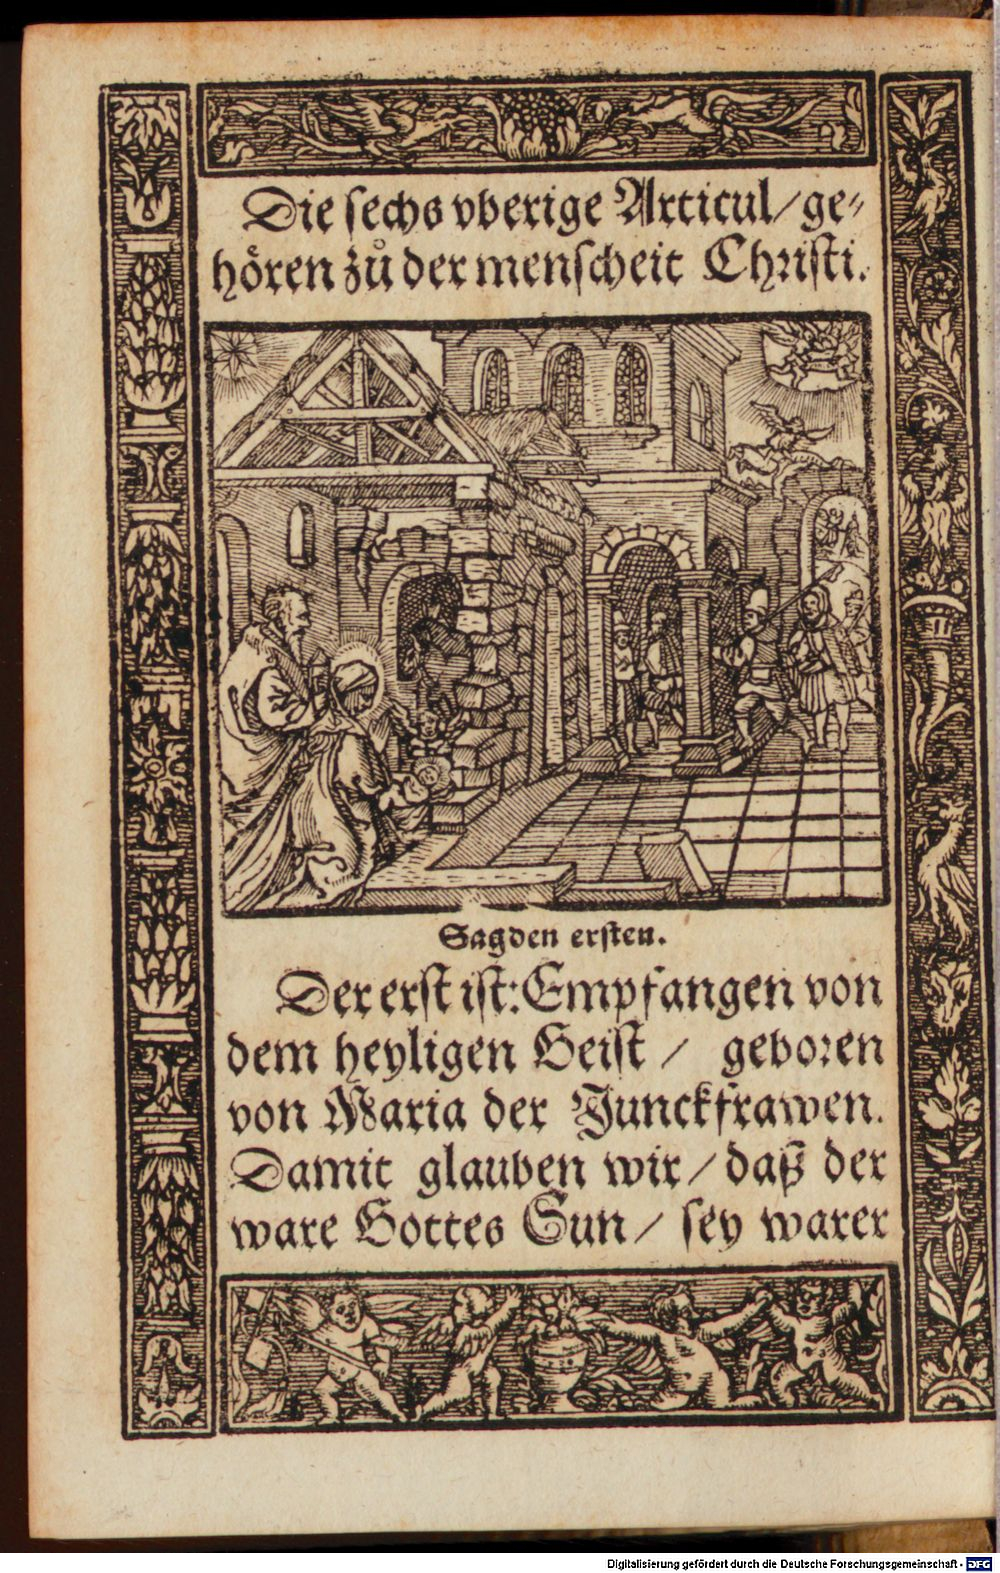 Die sechs vberige Articul/ ge-
hören zů der menscheit Christi.
Sag den ersten.
Der erst ist: Empfangen von
dem heyligen Geist / geboren
von Maria der Junckfrawen.
Damit glauben wir/ daß der
ware Gottes Sun/ sey warer
Digitalisierung gefördert durch die Deutsche Forschungsgemeinschaft - DFG